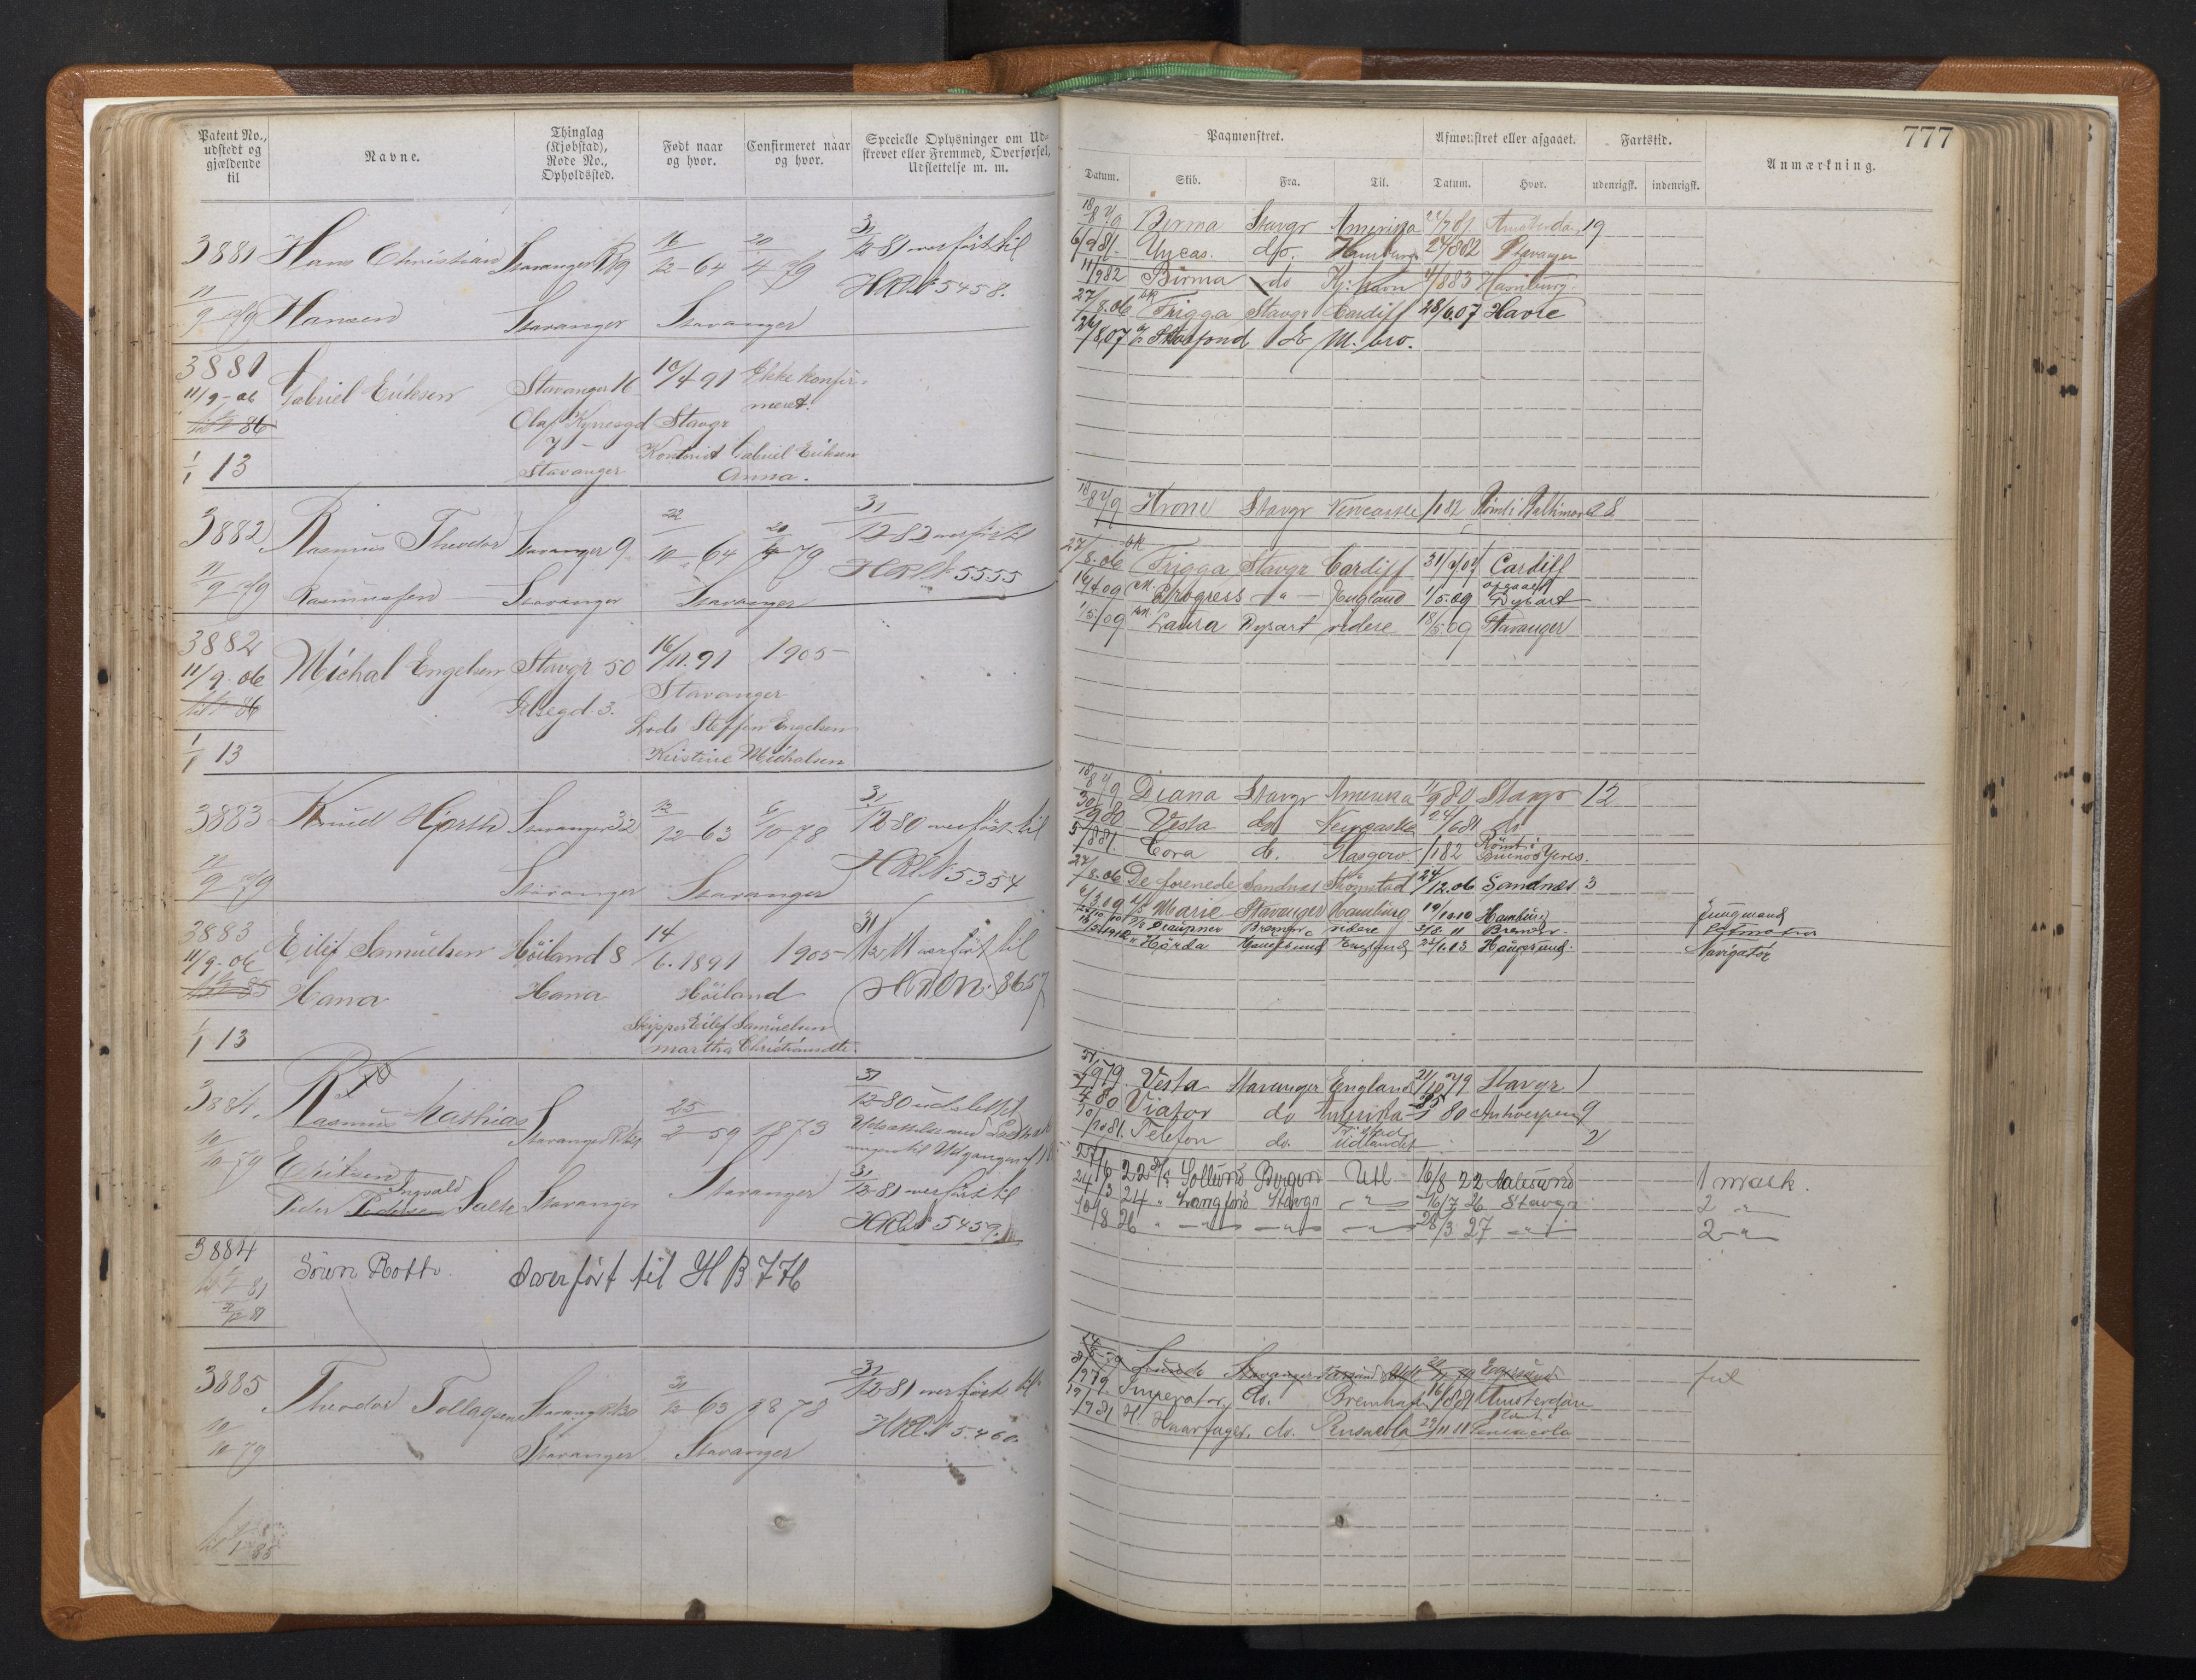 Patent No., udstedt og gjældende til
Navne.
Thinglag (Kjøbstad), Rode No., Opholdssted.
Født naar og hvor.
Confirmeret naar og hvor.
Specielle Oplysninger om Ud-
skrevet eller Fremmed, Overførsel,
Udslettelse m. m.
3881 Hans Christian Stavanger R 19 16/12-64 20/4 79 31/12 81 overført til
HRN 5458.
11/9 79 Hansen Stavanger Stavanger
3881
11/9-06 Gabriel Eriksen Stavanger 16 10/4 91 Ikke konfir-
meret.
Olaf Kyrresgd Stavgr
7 -
Kontorist Gabriel Eriksen
1/1 13 Stavanger Anna.
3882 Rasmus Theodor Stavanger 9 22/10-64 20/4-79 31/12-82 overført
HRN 5555
11/9 79 Rasmussen Stavanger Stavanger
3882
11/9.06 Michal Engelsen Stavgr 50 16/11.91 1905
Stavanger
Elsegd. 3.
Lods Steffen Engelsen
1/1 13 Kristine Michalsen
3883 Knud Hjorth Stavanger 32 12/12-63 6/10-78 31/12-80 overført til
HRN 5354
11/9 79 Stavanger Stavanger
3883
11/9.06 Eilif Samuelsen Høiland 8 14/6.1891 1905 31/12 11 overført til
Hana Hana Høiland 8657
Skipper Eilef Samuelsen
1/1 13 Martha Christiansdtr.
3884. Rasmus Mathias Stavanger 25/2-59 1873 31/12-80 udslettet
10/10-79 Eriksen
Ingvald
Peder Pedersen Salte Stavanger Stavanger 31/12-81 overført til
HRN 5459.
3884 Sören Rott. Overført til HB 776
3885 Theodor Tollagsen Stavang R 130 31/12-63 1878 31/12-81 overført til
HRN 5460.
10/10 79 Stavanger Stavanger
777
Paamønstret.
Afmønstret eller afgaaet.
Fartstid.
Anmærkning.
Datum. Skib. Fra. Til. Datum. Hvor. udenrigsk. indenrigsk.
18/8 79 Birma Stavgr Amerika Amsterdam 19
6/9 81 Uncas. do. Hamburg 24/8 82 Stavanger
11/9 82 Birma do Kj:havn 4/8 83 Hamburg.
27/8.06 bk Frigga Stavgr Cardiff 28/6.07 Havre
26/8.07
18/8 79 Krone Stavgr Newcastle 1/1 82 Rømt i Baltimore 28
27/8.06 bk Frigga Stavgr Cardiff Cardiff
16/4 09 Progress England 1/5.09 Dysart
1/5/09 Laura Dysart videre 18/5.09 Stavanger
18/8 79 Diana Stavgr Amerika 1/9 80 Stavgr 12
30/9 80 Vesta do Newcastle 24/6 81 do
5/8 81. Cora do. Glasgow. 1/1 82 Rømt i Buenos Ayres.
27/8.06 De forenede Sandnes Strömstad 24/12.06 Sandnes 3
6/3.09 Marie Stavanger Hamburg 19/10 10 Hamburg Jungmand
Draupner Bremen videre 31/8.11 Bremen.
Hörda Haugesund England 25/6.13 Haugesund. Navigatör
Vesta Stavanger England 21/10 79 Stavgr 1
Viator do Amerika 80 Antwerpen 9
Telefon do. Udlandet 2
27/6 22 Sollund Bergen Utl 16/8 22 Aalesund 1 mdek.
24/3 24 " Langfond Stavgr " 16/7 26 Stavgr 2 "
10/8 26 " " " " 28/3 27 " 2 "
Stavanger Egersund feil
Imperator, do. Bremhafen 16/8 81 Amsterdam
H. Haarfager. do. Pensacola Rømt i Pensacola